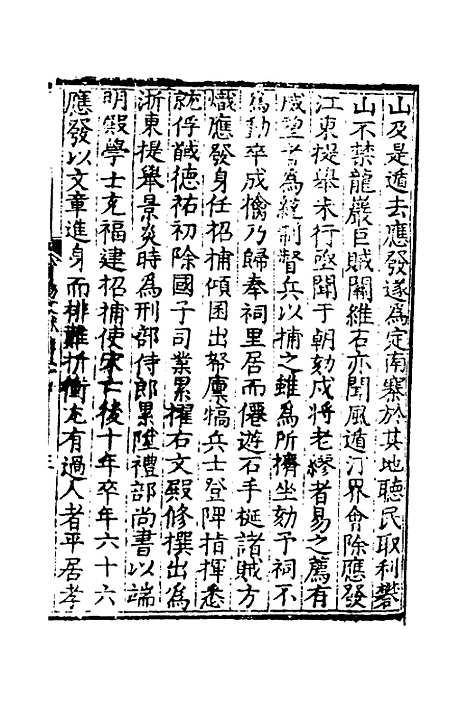 山及是遁去應發遂為定南寨於其地聽民取利礬
山不禁龍巖巨賊闗維右亦聞風遁汀界會除應發
江東提舉未行亟聞于朝劾戍將老繆者易之薦有
威望者為統制督兵以捕之雖為所擠坐劾予祠不
為動卒成擒乃歸奉祠里居而僊遊石手梃諸賊方
熾應發身任招捕傾囷出帑廩犒兵士登陴指揮悉
就俘馘徳祐初除國子司業累擢右文殿修撰出為
浙東提舉景炎時為刑部侍郎累陞禮部尚書以端
明殿學士充福建招捕使宋亡後十年卒年六十六
應發以文章進身而排難折衝尤有過人者平居孝